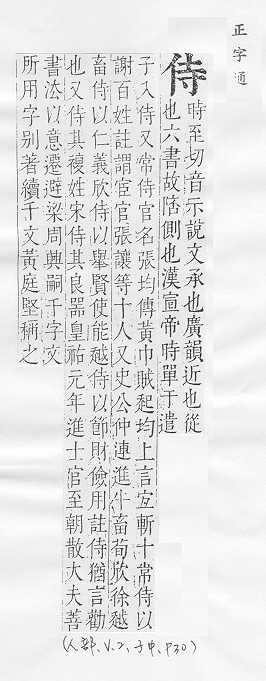 正字通
侍
時至切音示說文承也廣韻近也從
也六書故陪側也漢宣帝時單于遣
子入侍又常侍官名張均傳黃巾賊起均上言宜斬十常侍以
謝百姓註謂宦官張讓等十人又史公仲連進牛畜荀欣徐越
畜侍以仁義欣侍以舉賢使能越侍以節財儉用註侍猶言勸
也又侍其複姓宋侍其良器皇祐元年進士官至朝散大夫善
書法以意遷避梁周興嗣千字文
所用字別著續千文黃庭堅稱之
(人部、V.2、子中、P30)